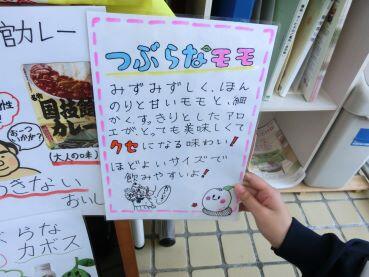 つぶらなモモ
みずみずしく、ほん
のりと甘いモモと、細
かくすっきりとしたアロ
エが、とっても美味しくて
クセになる味わい!
ほどよいサイズで
飲みやすいよ!
官カレー
カレー
(大人の味)
つきない
おいし
ぶらな
カボス